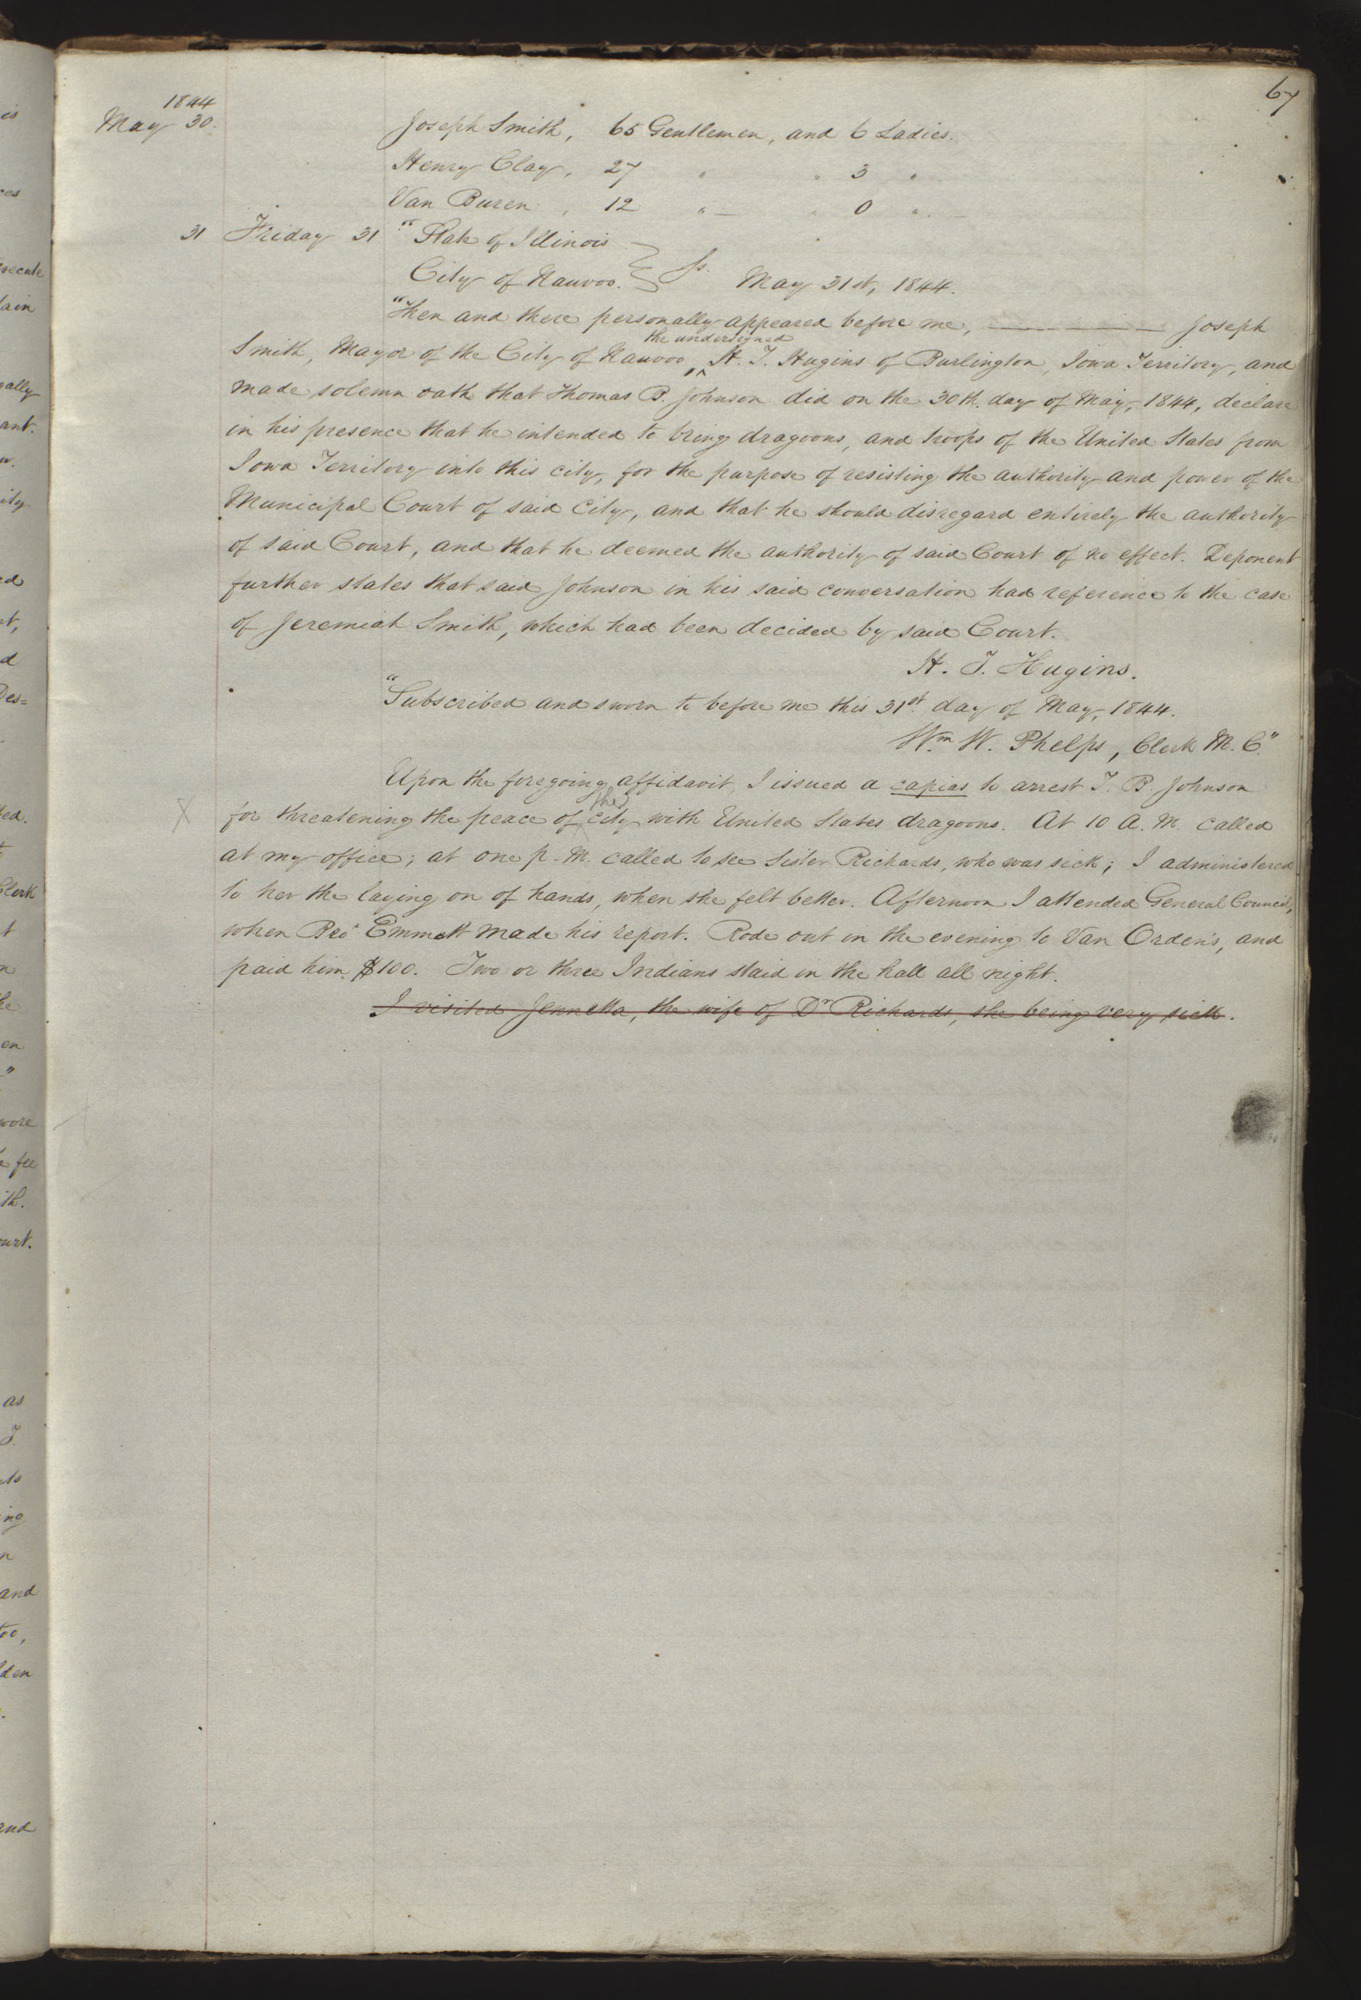 67
1844
May 30.
Joseph Smith, 65 Gentlemen, and 6 Ladies.
Henry Clay, 27 " " 3 "
Van Buren, 12 " " 0 "
31 Friday 31 "State of Illinois
City of Nauvoo. } Ss. May 31st, 1844.
"Then and there personally appeared before me, ——— Joseph
the undersigned
Smith, Mayor of the City of Nauvoo, ^ H. T. Hugins of Burlington, Iowa Territory, and
made solemn oath that Thomas B. Johnson did on the 30th. day of May, 1844, declare
in his presence that he intended to bring dragoons, and troops of the United States from
Iowa Territory into this city, for the purpose of resisting the authority and power of the
Municipal Court of said City, and that he should disregard entirely the authority
of said Court, and that he deemed the authority of said Court of no effect. Deponent
further states that said Johnson in his said conversation had reference to the case
of Jeremiah Smith, which had been decided by said Court.
H. T. Hugins.
"Subscribed and sworn to before me this 31st. day of May, 1844.
Wm. W. Phelps, Clerk M. C."
Upon the foregoing affidavit, I issued a capias to arrest T. B. Johnson
the
X for threatening the peace of ^ city with United States dragoons. At 10 A. M. called
at my office; at one p. M. called to see Sister Richards, who was sick; I administered
to her the laying on of hands, when she felt better. Afternoon I attended General Council,
when Bro Emmett made his report. Rode out in the evening to Van Orden's, and
paid him $100. Two or three Indians staid in the hall all night.
I visited Jennetta, the wife of Dr Richards, she being very sick.
is
ces
execute
lain
gally
ant.
w.
ity
ed
rt,
d
Des=
ted.
Clerk
t
n
he
en
"
wore
e fee
ith.
ourt.
as
T.
ing
n
and
too,
lden
and